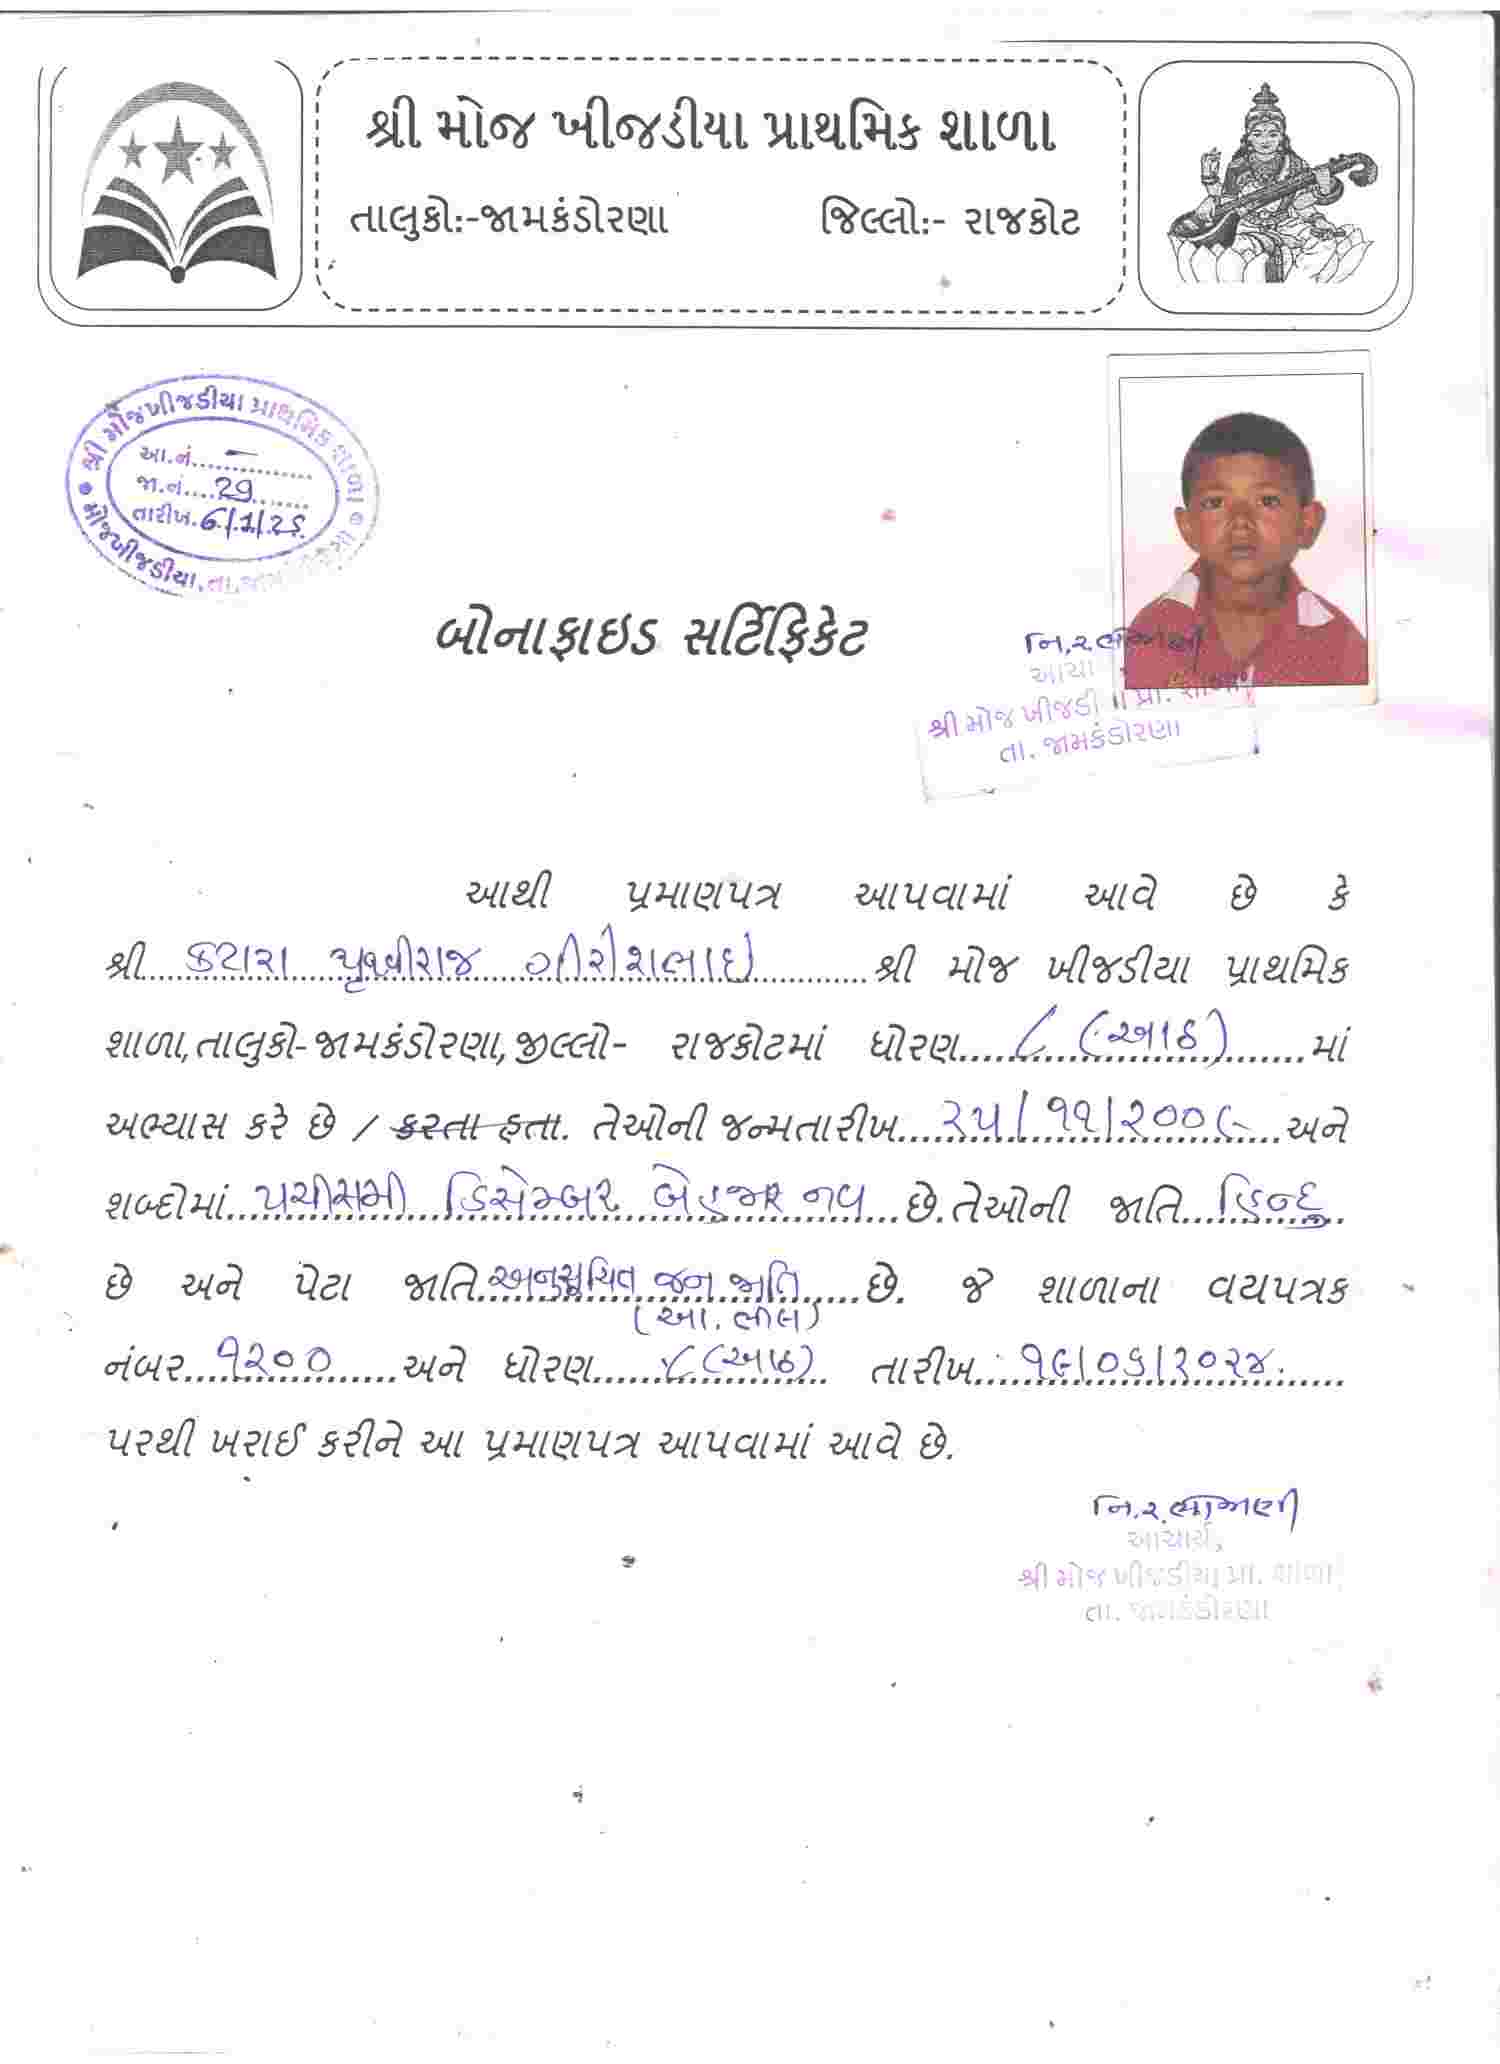 શ્રી મોજ ખીજડીયા પ્રાથમિક શાળા
તાલુકો:-જામકંડોરણા જિલ્લો:- રાજકોટ
શ્રી મોજખીજડીયા પ્રાથમિક શાળા
આ.નં.......
જા.નં....29......
તારીખ.6/1/25.
મોજખીજડીયા, તા.
બોનાફાઇડ સર્ટિફિકેટ
નિ.ર.
શ્રી મોજ ખીજડી પ્રા. શાળા
તા. જામકંડોરણા
આથી પ્રમાણપત્ર આપવામાં આવે છે કે
શ્રી....કટારા પૃથ્વીરાજ ગીરીશભાઇ....શ્રી મોજ ખીજડીયા પ્રાથમિક
શાળા,તાલુકો-જામકંડોરણા,જીલ્લો- રાજકોટમાં ધોરણ....૮ (આઠ)....માં
અભ્યાસ કરે છે / કરતા હતા. તેઓની જન્મતારીખ....૨૫/૧૧/૨૦૦૯....અને
શબ્દોમાં....પચીસમી ડિસેમ્બર બેહજાર નવ...છે.તેઓની જાતિ....હિન્દુ..
છે અને પેટા જાતિ.અનુસૂચિત જન જાતિ....છે. જે શાળાના વયપત્રક
(આ. ભીલ)
નંબર...૧૨૦૦......અને ધોરણ.....૮(આઠ) તારીખ..૧૯/૦૬/૨૦૨૪.....
પરથી ખરાઈ કરીને આ પ્રમાણપત્ર આપવામાં આવે છે.
નિ.ર.
આચાર્ય,
શ્રી મોજ ખીજડીયા પ્રા. શાળા
તા. જામકંડોરણા